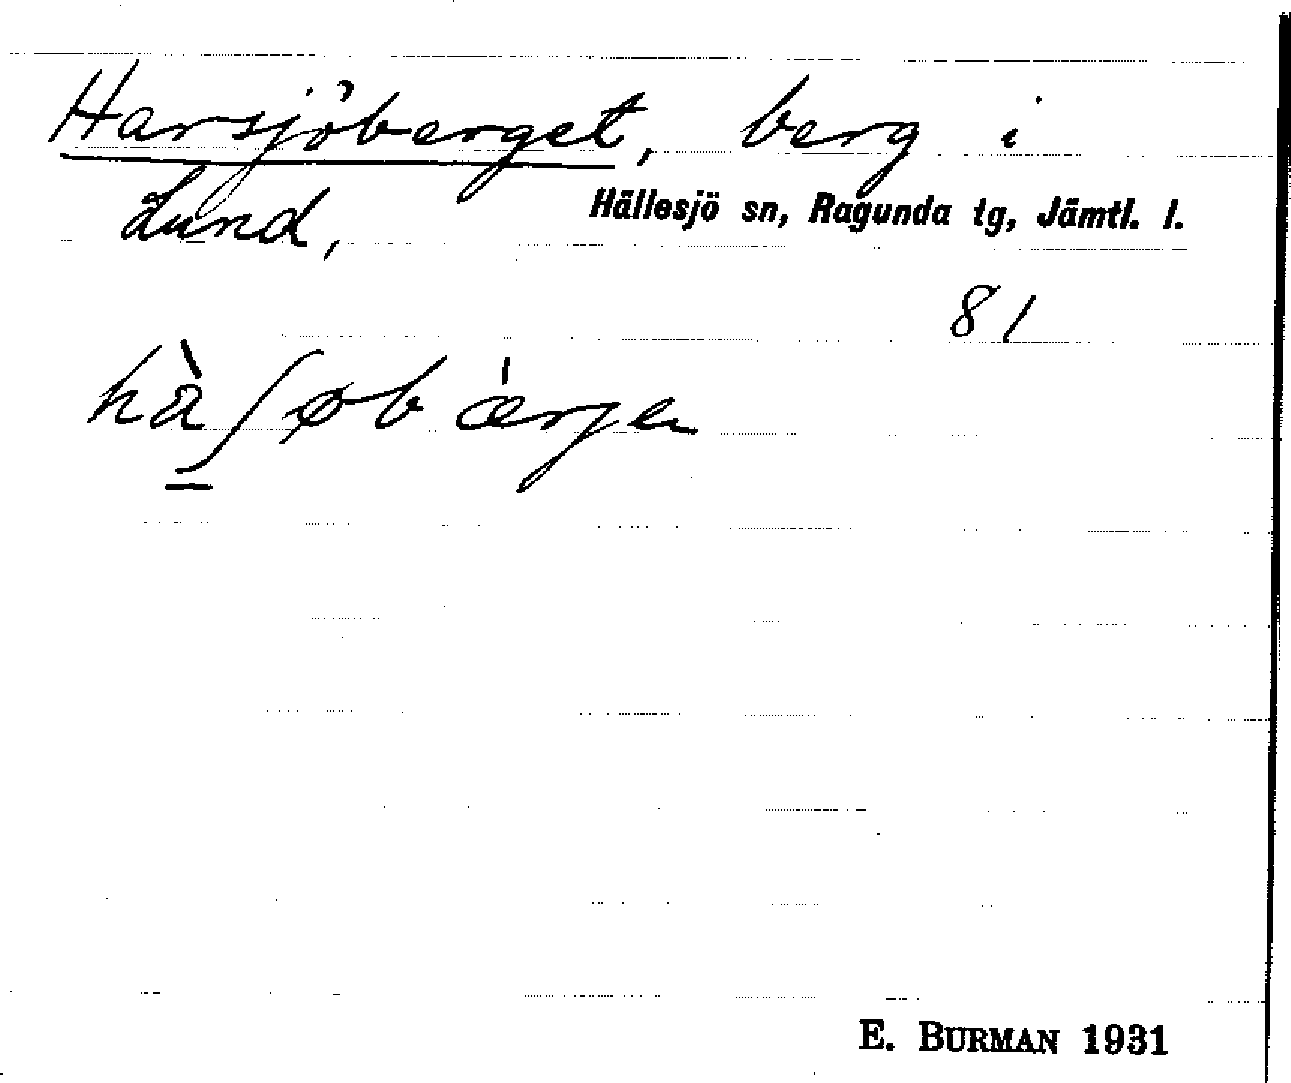 Harsjöberget, berg i
Lund, Hällesjö sn, Ragunda tg, Jämtl. l.
81
hàʃøbǽrjen
E. BURMAN 1931